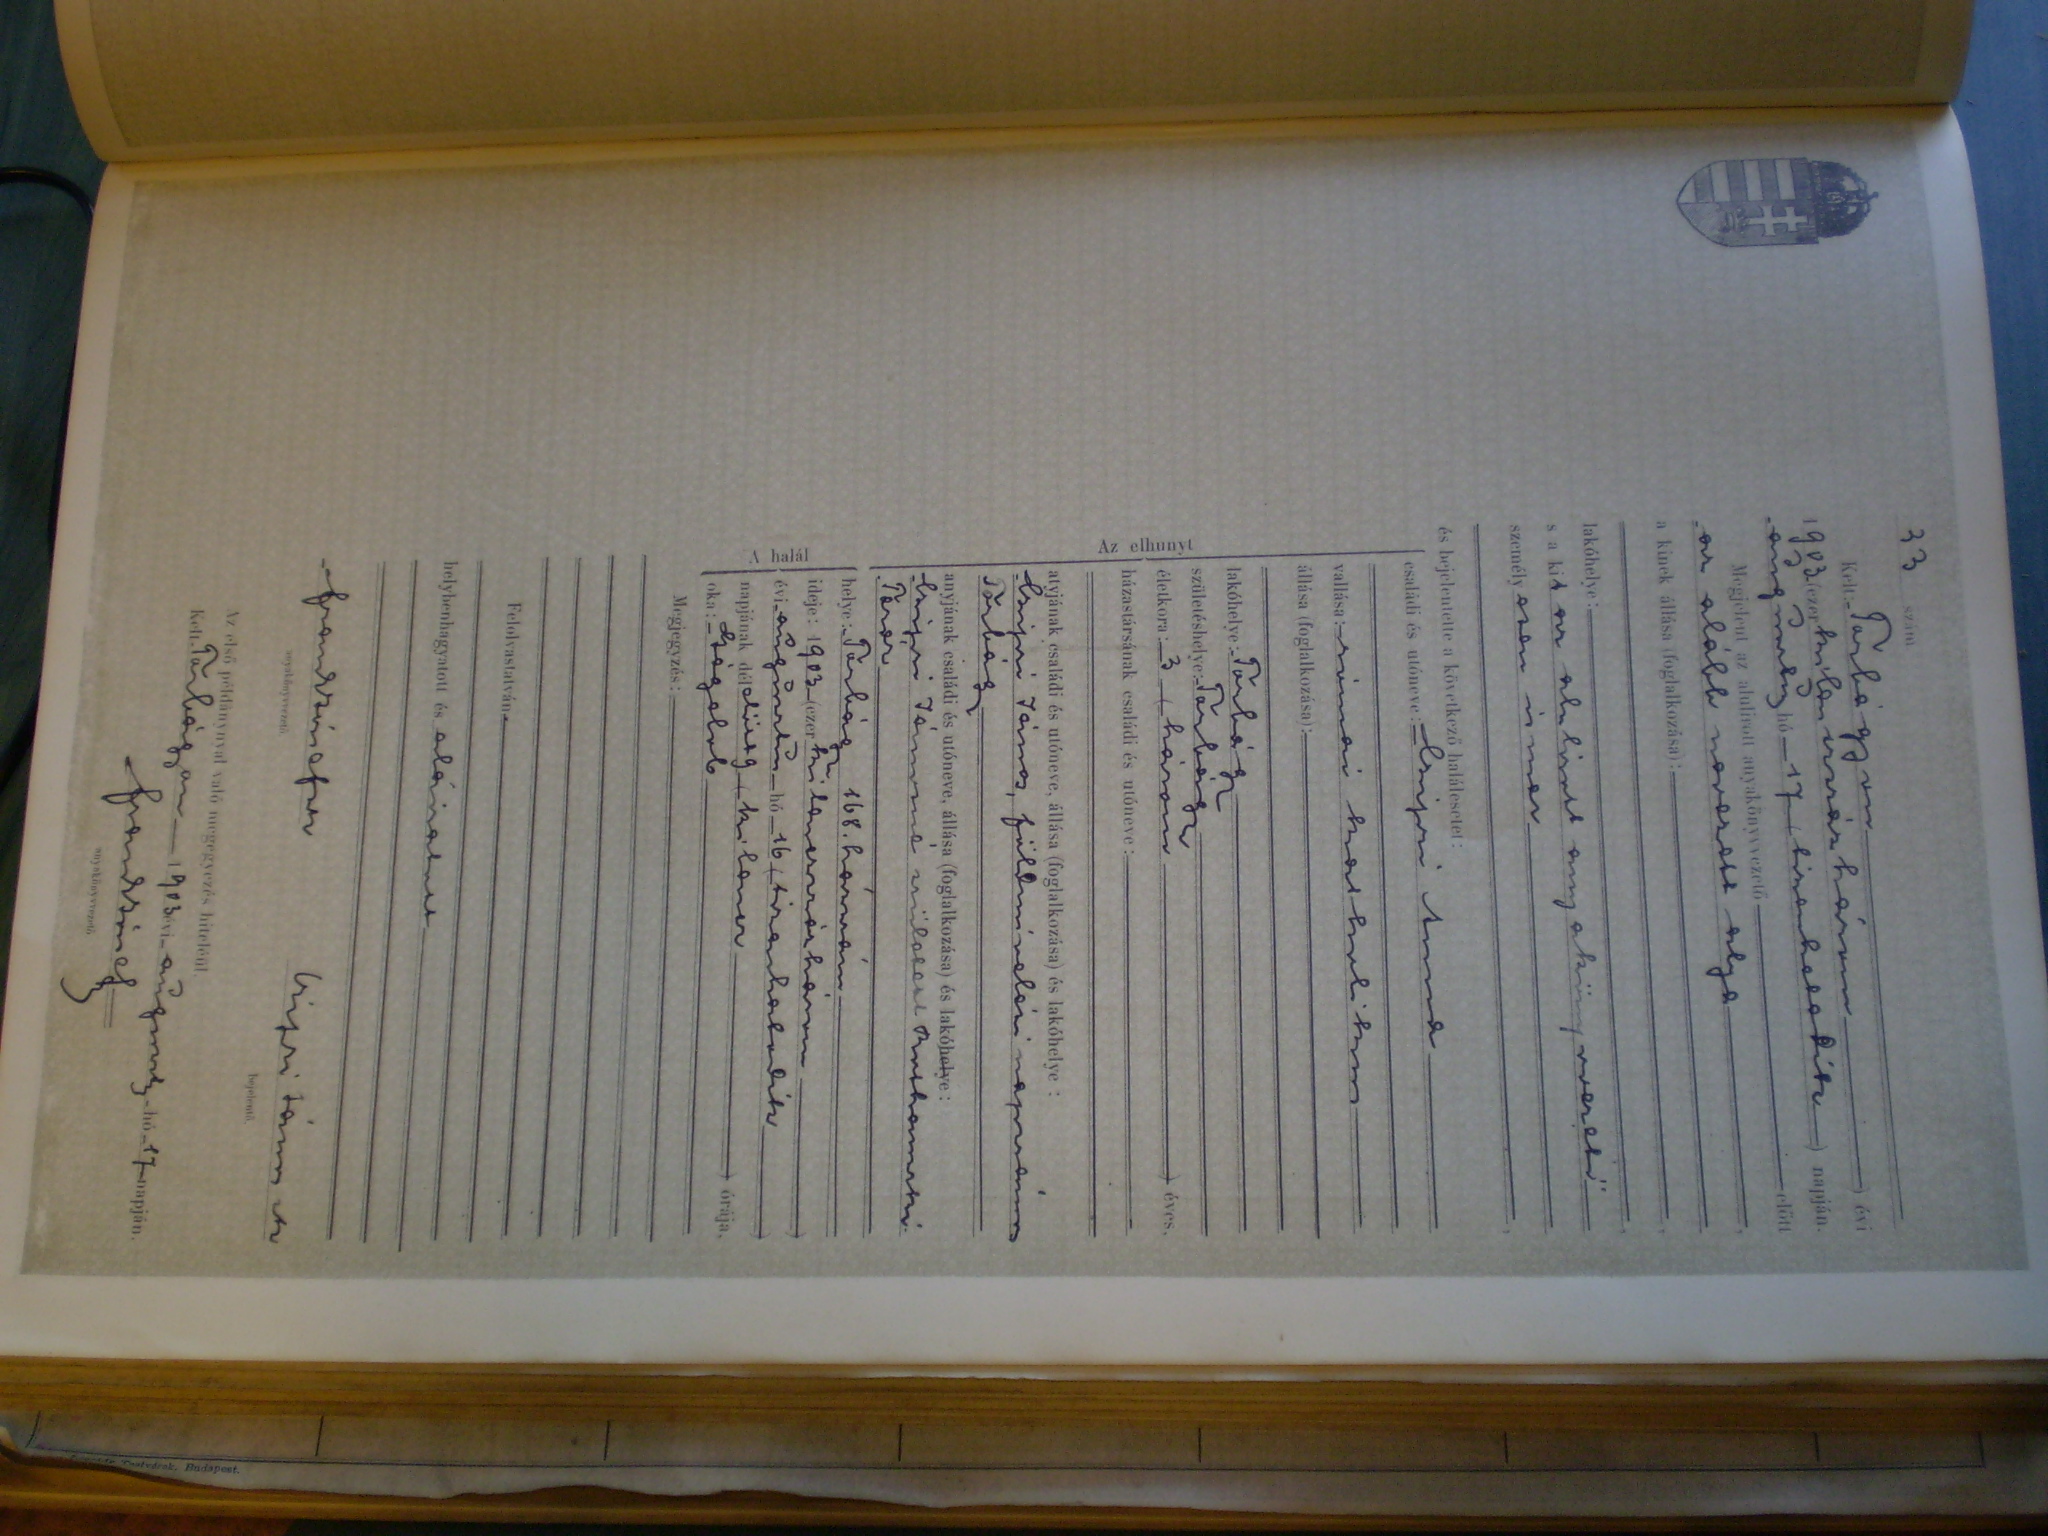 33 szám
Kelt: Torbágyon
1903 (ezer kilenczszázhárom) évi
augusztus hó 17 (tizenhetedik) napján.
Megjelent az alulirott anyakönyvvezető előtt
az alább nevezett atya,
a kinek állása (foglalkozása):
lakóhelye:
s a kit az alulirt anyakönyvvezető
személyesen ismer,
és bejelentette a következő halálesetet:
Az elhunyt
családi és utóneve: Czipri Anna
vallása: római katholikus
állása (foglalkozása):
lakóhelye: Torbágy
születéshelye: Torbágy
életkora: 3 (három) éves.
házastársának családi és utóneve:
atyjának családi és utóneve, állása (foglalkozása) és lakóhelye:
Czipri János, földmivelési napszámos
Torbágy
anyjának családi és utóneve, állása (foglalkozása) és lakóhelye:
Czipri Jánosné született
A halál
helye: Torbágy 168. házszám
ideje: 1903 (ezer kilenczszázhárom)
évi augusztus hó 16 (tizenhatodik)
napjának délelőtti 9 (kilencz) órája,
oka:
Megjegyzés:
Felolvastatván,
helybenhagyatott és aláiratott
anyakönyvvezető.
Czipri János
bejelentő.
Az első példánynyal való megegyezés hiteléül.
Kelt: Torbágyon 1903 évi augusztus hó 17 napján.
anyakönyvvezető
Testvérek, Budapest.